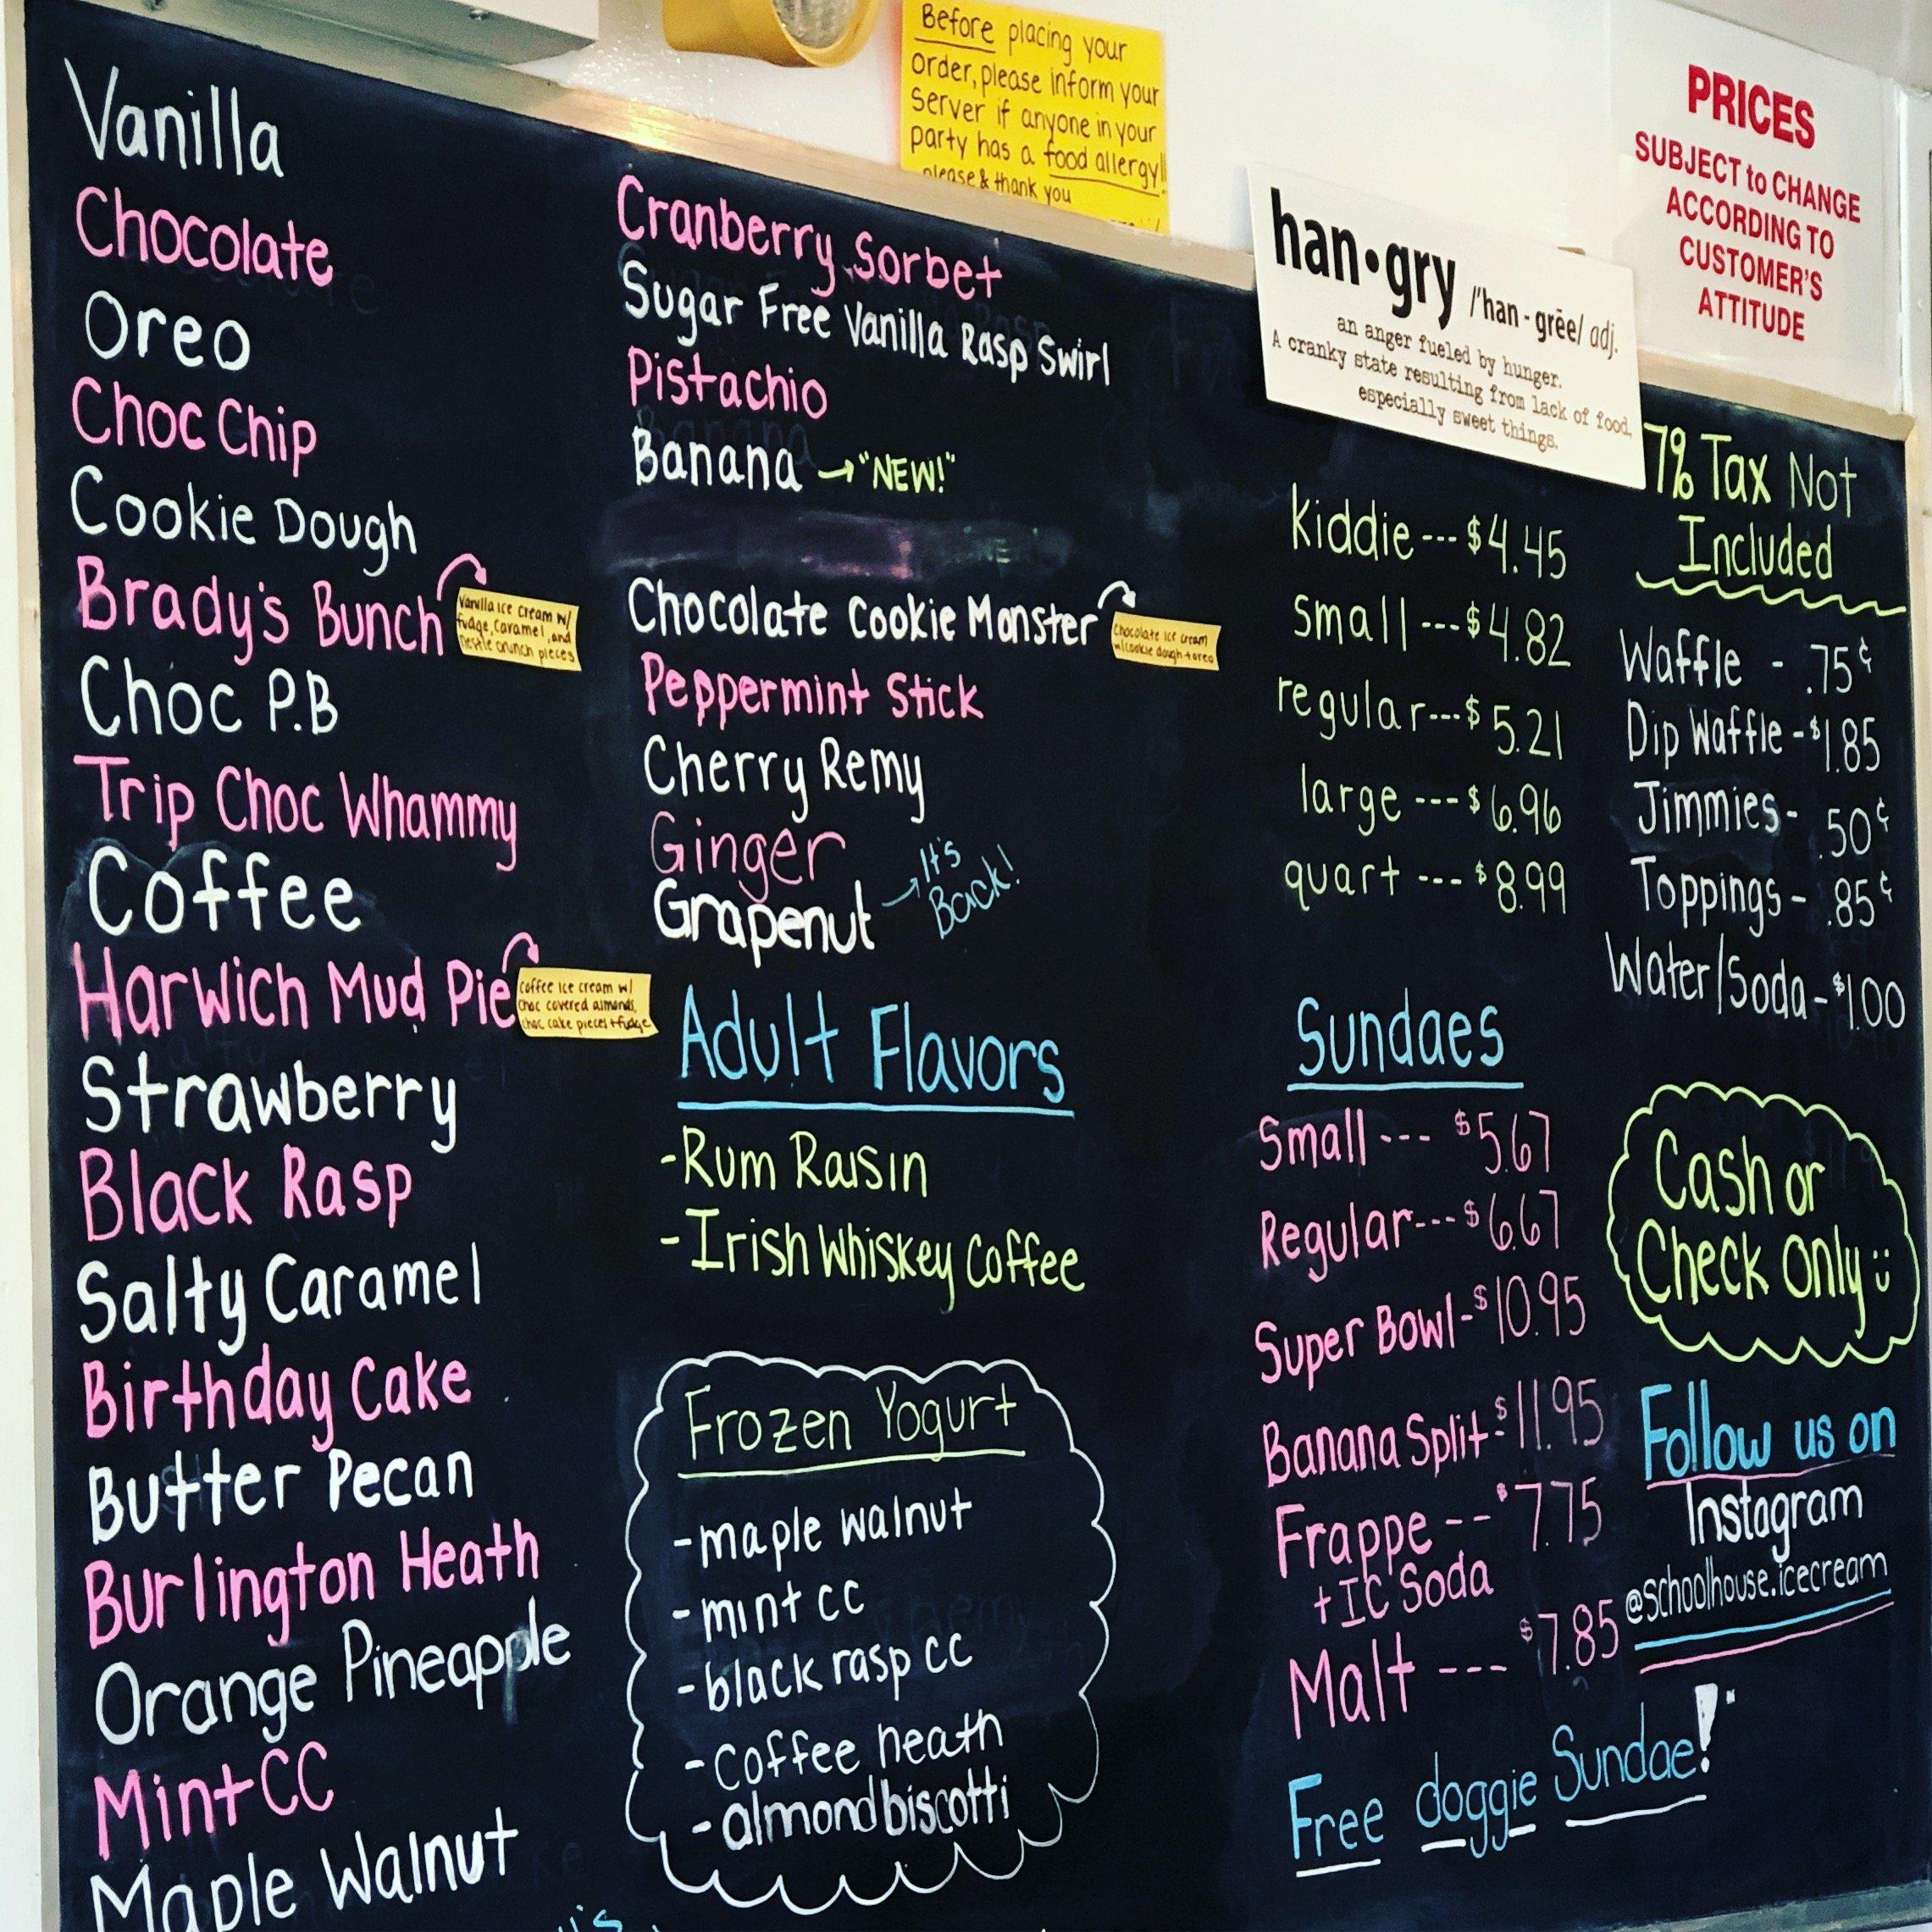 Before placing your
order, please inform your
server if anyone in your
party has a food allergy!!
please & thank you
PRICES
SUBJECT to CHANGE
ACCORDING TO
CUSTOMER'S
ATTITUDE
han•gry /'han - grēe/ adj.
an anger fueled by hunger.
A cranky state resulting from lack of food,
especially sweet things.
Vanilla
Chocolate
Oreo
Choc Chip
Cookie Dough
Brady's Bunch
Vanilla ice cream w/
fudge, caramel, and
Nestle crunch pieces
Choc P.B
Trip Choc Whammy
Coffee
Harwich Mud Pie
coffee ice cream w/
choc covered almonds,
choc cake pieces + fudge
Strawberry
Black Rasp
Salty Caramel
Birthday Cake
Butter Pecan
Burlington Heath
Orange Pineapple
Mint CC
Maple Walnut
Cranberry Sorbet
Sugar Free Vanilla Rasp Swirl
Pistachio
Banana → "NEW!"
Chocolate Cookie Monster
Chocolate ice cream
w/cookie dough + oreo
Peppermint Stick
Cherry Remy
Ginger
Grapenut → It's
Back!
Adult Flavors
-Rum Raisin
-Irish Whiskey Coffee
Frozen Yogurt
-maple walnut
-mint cc
-black rasp cc
-coffee heath
-almond biscotti
kiddie --- $4.45
small --- $4.82
regular --- $5.21
large --- $6.96
quart --- $8.99
Sundaes
Small --- $5.67
Regular --- $6.67
Super Bowl - $10.95
Banana Split - $11.95
Frappe -- $7.75
+ IC Soda
Malt --- $7.85
Free doggie Sundae!
7% Tax Not
Included
Waffle - .75¢
Dip Waffle - $1.85
Jimmies - .50¢
Toppings - .85¢
Water/Soda - $1.00
Cash or
Check only
Follow us on
Instagram
@schoolhouse.icecream